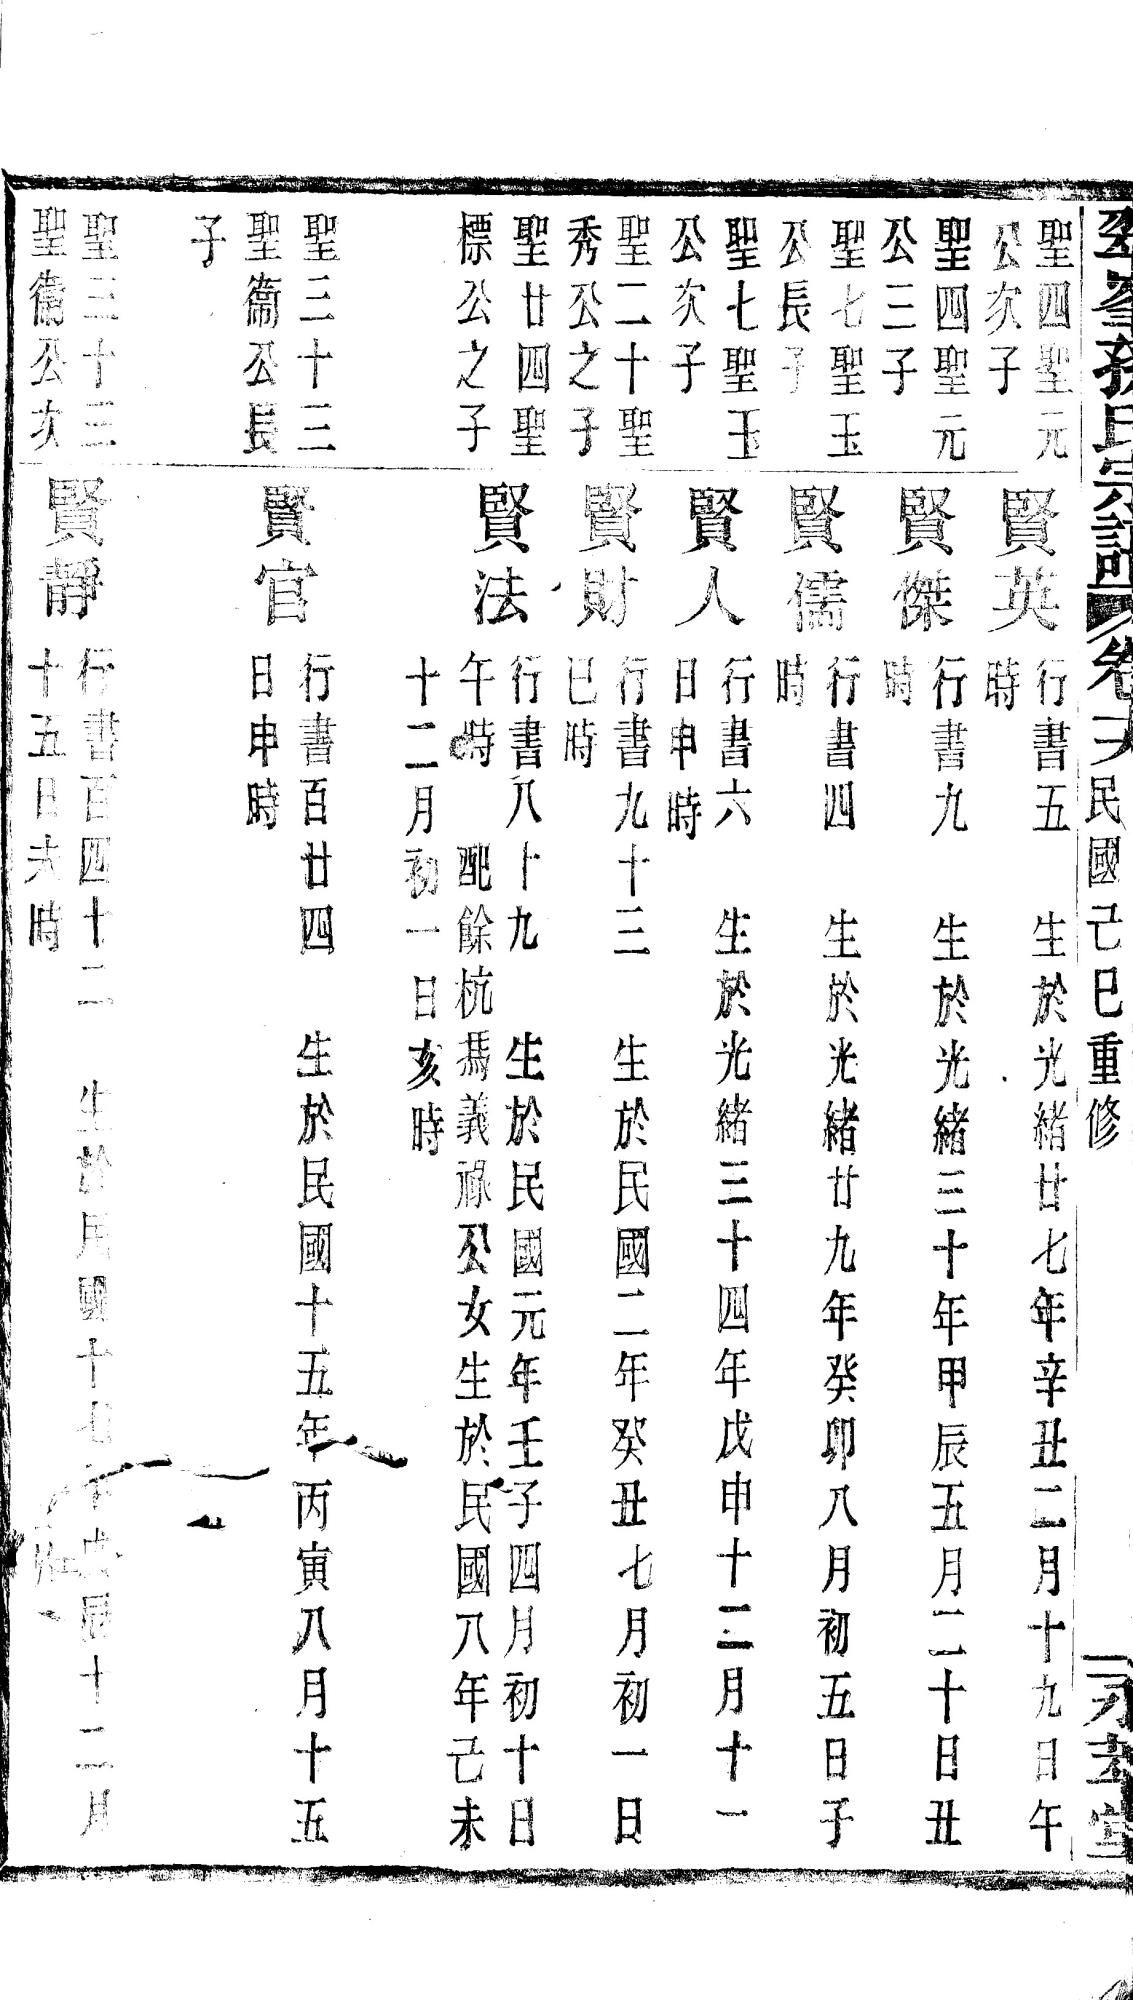 孫氏宗譜 卷六 民國己巳重修
聖四聖元
公次子
賢英
行書五 生於光緒廿七年辛丑二月十九日午
時
聖四聖元
公三子
賢傑
行書九 生於光緒三十年甲辰五月二十日丑
時
聖七聖玉
公長子
賢儒
行書四 生於光緒廿九年癸卯八月初五日子
時
聖七聖玉
公次子
賢人
行書六 生於光緒三十四年戊申十二月十一
日申時
聖二十聖
秀公之子
賢財
行書九十三 生於民國二年癸丑七月初一日
巳時
聖廿四聖
標公之子
賢法
行書八十九 生於民國元年壬子四月初十日
午時 配餘杭馮義祿公女生於民國八年己未
十二月初一日亥時
聖三十三
聖衞公長
子
賢官
行書百廿四 生於民國十五年丙寅八月十五
日申時
聖三十三
聖衞公次
賢靜
行書百四十二 生於民國十七年戊辰十二月
十五日未時